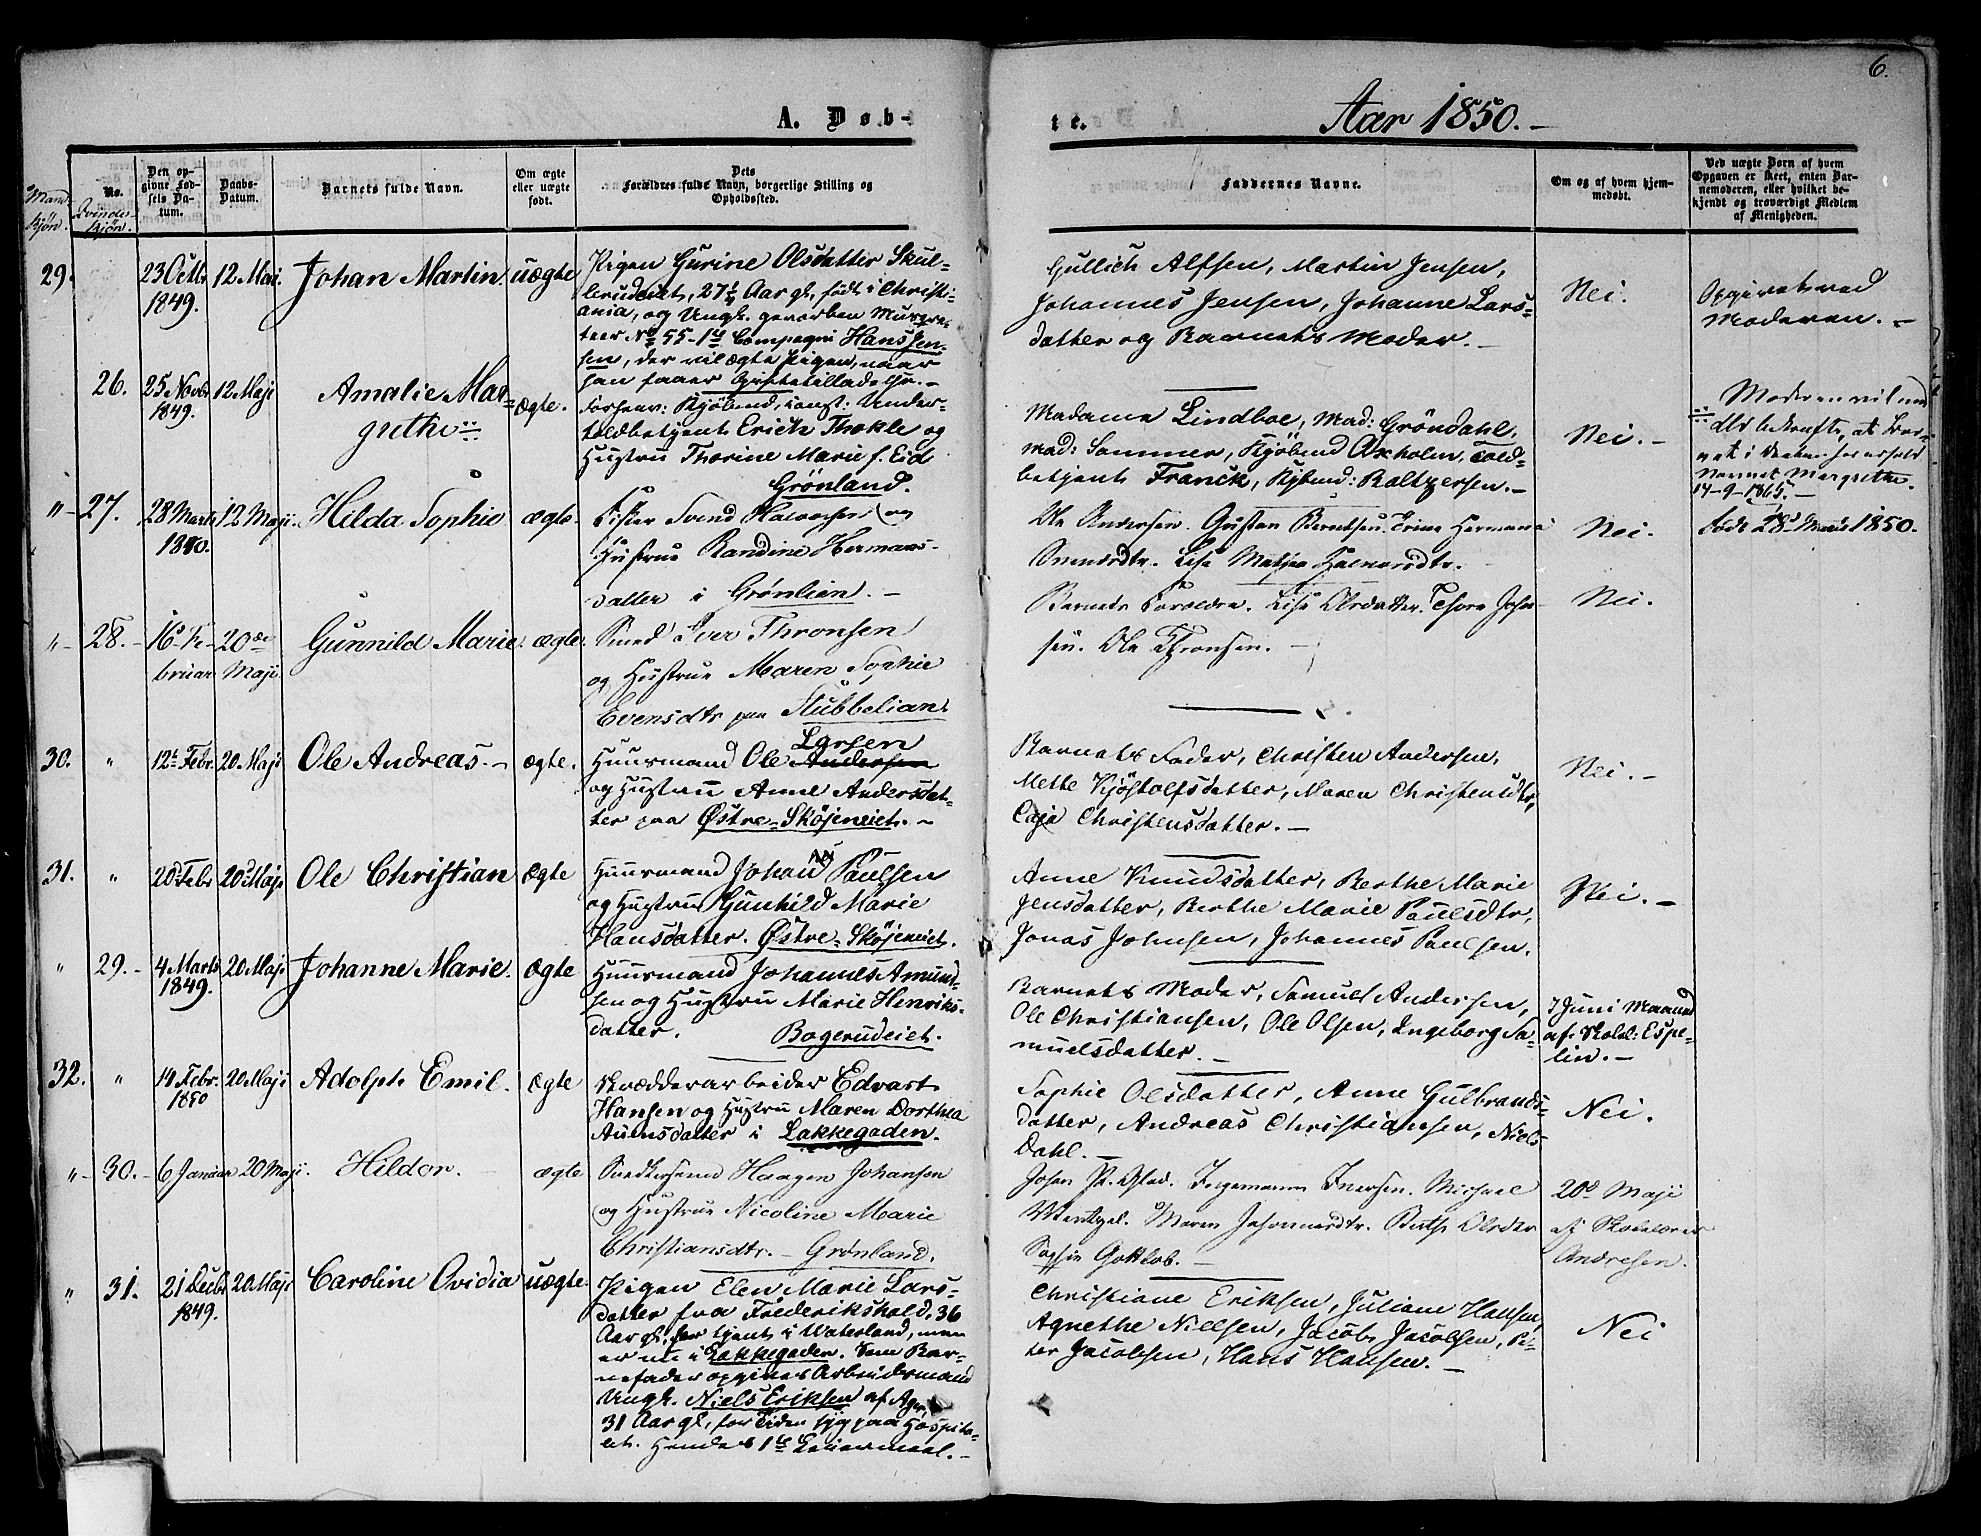 6.
A. Døb-
te.
Aar 1850.-
Mand-
kjøn.
No.
Qvinde-
kjøn.
Den op-
givne Fød-
sels Da-
tum.
Daabs-
Datum.
Barnets fulde Navn.
Om ægte
eller uægte
født.
Dets
Forældres fulde Navn, borgerlige Stilling og
Opholdssted.
Faddernes Navne.
Om og af hvem hjem-
medøbt.
Ved uægte Børn af hvem
Opgaven er skeet, enten Bar-
nemoderen, eller hvilket be-
kjendt og troværdigt Medlem
af Menigheden.
29.
23 Octbr
1849.
12 Mai.
Johan Martin.
uægte
Pigen Gurine Olsdatter Skul-
lerudeiet, 27½ Aar gl., født i Christi-
ania, og Ungk. gevorben Musqve-
teer No 55-1ste Compagni Hanssen
sen, der vil ægte Pigen, naar
han faaer Giftetilladelse.-
Gullich Alfsen, Martin Jensen,
Johannes Jensen, Johanne Lars-
datter og Barnets Moder.-
Nei.
Opgivet ved
Moderen.-
26.
25 Novbr
1849.
12 Maji
Amalie Mar-
grethe
ægte.
Forhenv: Kjøbmd, const: Under-
toldbetjent Erich Thokle og
Hustru Thorine Marie f. Eid
Grönland.
Madame Lindboe, Mad: Gröndahl,
Mad: Sommer, Kjöbmd Axholm, Told-
betjent Franck, Kjbmd: Baltzersen.-
Nei.-
Moderen vil med
Ed bekræfte, at Bar-
net i Daaben har erholdt
Navnet Margrethe.
14-9-1865.-
"-27.
28 Marts
1850.
12 Maji.
Hilda Sophie
ægte.
Fisker Svend Halvorsen og
Hustrue Randine Hermans-
datter i Grønlien.-
Ole Andersen. Gustav Berntsen. Trine Hermana
Svendsdtr. Lise Mathea Halvorsdtr.
Nei.
født 28de Marts 1850.
"-28.-
16de Fe-
bruar
20de
Maji
Gunnild Marie.
ægte.
Smed Iver Thronsen
og Hustrue Maren Sophie
Evensdtr paa Stubbelian.
Barnets Forældre. Lise Olsdatter. Thore Johan-
sen. Ole Thronsen.-
Nei.
30.
"
12te Febr.
20 Maji
Ole Andreas.-
ægte.
Larsen
Huusmand Ole Andersen
og Hustru Anne Andersdat-
ter paa Østre-Sköjeneiet.-
Barnets Fader, Christen Andersen,
Mette Kjöstolfsdatter, Maren Christensdtr,
Caja Christensdatter.-
Nei.-
31.
"
20de Febr
20de Maji
Ole Christian
Ægte
Huusmand Johan Paulsen
og Hustru Gunhild Marie
Hansdatter. Østre-Sköjeneiet.
Anne Knudsdatter, Berthe Marie
Jensdatter, Berthe Marie Paulsdtr,
Jonas Johnsen, Johannes Paulsen.
Nei.-
"
29.-
4 Marts
1849.
20 Maji
Johanne Marie.
Ægte
Huusmand Johannes Amund-
sen og Hustru Marie Henriks-
datter.
Bogerudeiet.
Barnets Moder, Samuel Andersen,
Ole Christiansen, Ole Olsen, Ingeborg Sa-
muelsdatter.-
7 Juni Maaned
af Skolel: Espe-
lin.-
32.
"
14 Febr.
1850
20 Maji
Adolph Emil.
Ægte
Skrædderarbeider Edvart
Hansen og Hustru Maren Dorthea
Auensdatter i Lakkegaden.
Sophie Olsdatter, Anne Gulbrands-
datter, Andreas Christiansen, Niels
Dahl.-
Nei.
"-30.-
6 Januar
20 Maji.
Hildor.
ægte
Snedkersvend Haagen Johansen
og Hustrue Nicoline Marie
Christiansdtr.-Grønland.
Johan P. Ingemann Iversen. Michael
Wentzel. Maren Johannesdtr. Berthe Olsdtr
Sophie Gottlob.-
20de Maji
af Skolelærer
Andresen.
"
31.
21 Decbr
1849.
20 Maji
Caroline Ovidia
uægte
Pigen Elen Marie Lars-
datter fra Frederikshald, 36
Aar gl., før tjent i Waterland, men
er nu i Lakkegaden. Som Bar-
nefader opgives Arbeidsmand
Ungk. Niels Eriksen af Ager,
31 Aar gl., for Tiden syg paa Hospita-
let. Hendes 1ste Leiermaal.-
Christiane Eriksen, Juliane Hansen,
Agnethe Nielsen, Jacob Jacobsen, Pe-
ter Jacobsen, Hans Hansen.-
Nei